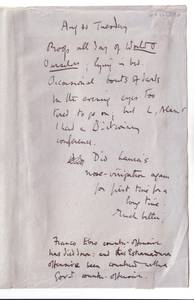 Aug 22 Tuesday
Proofs all day of World O
Ourselves; lying in bed.
Occasional bouts of cards
In the evening eyes too
tired to go on; but L, Alan &
I had a Dictionary
conference.
Did Laura's
nose-irrigation again
for first time for a
long time
Much better
Franco Ebro counter-offensive
has died down: and this Estremadura
offensive been countered with a
Govt counter-offensive.